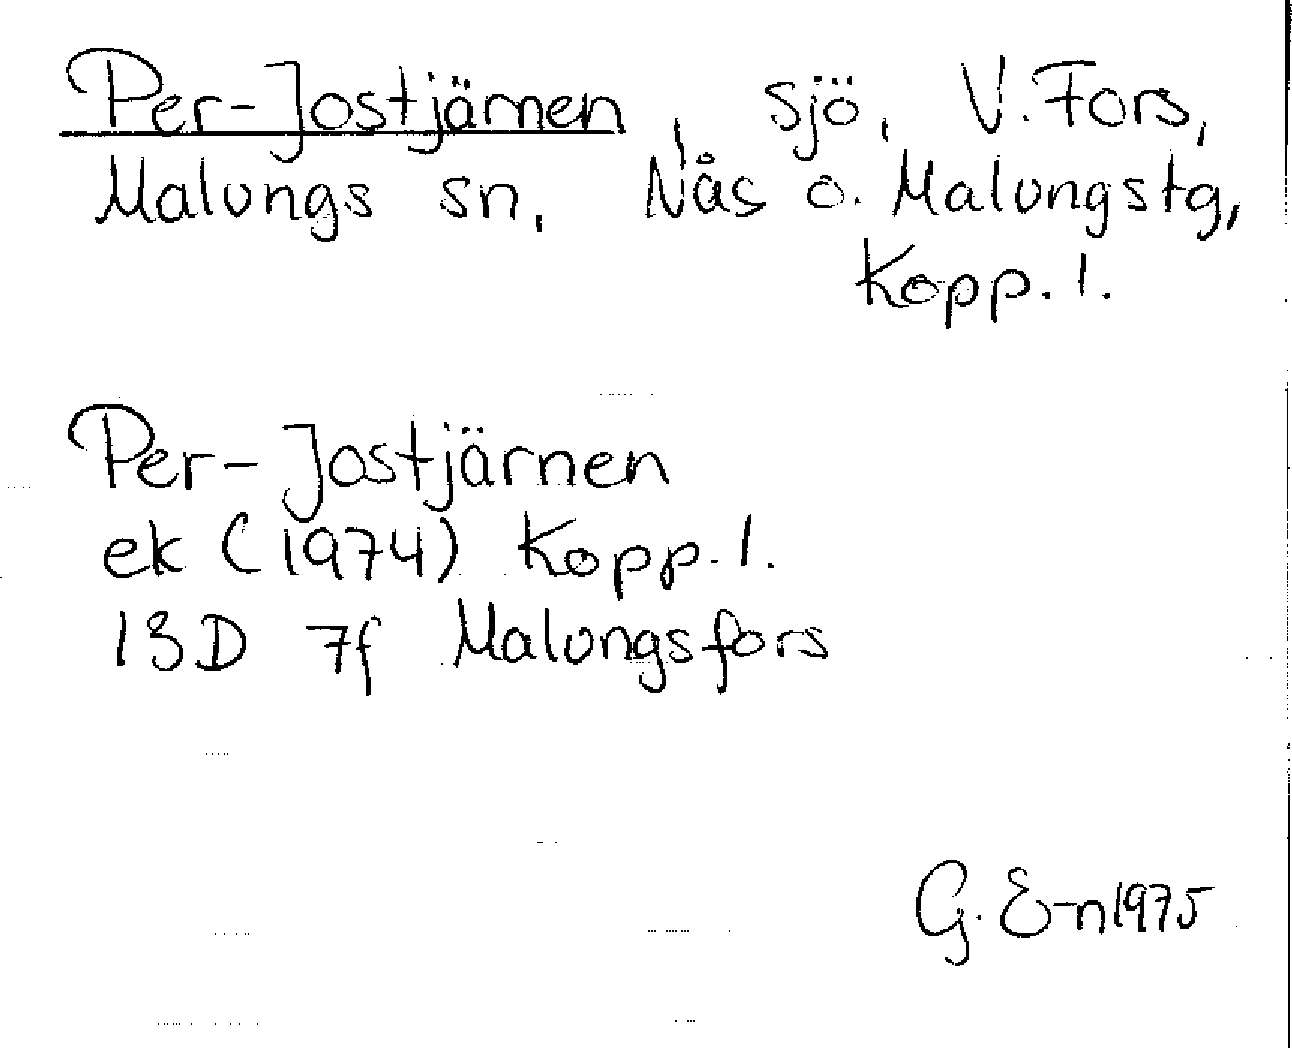 Per-Jostjärnen, sjö, V. Fors,
Malungs sn, Nås o. Malungstg,
Kopp. l.
Per-Jostjärnen
ek (1974) Kopp. l.
13D 7f Malungsfors
G. E-n 1975